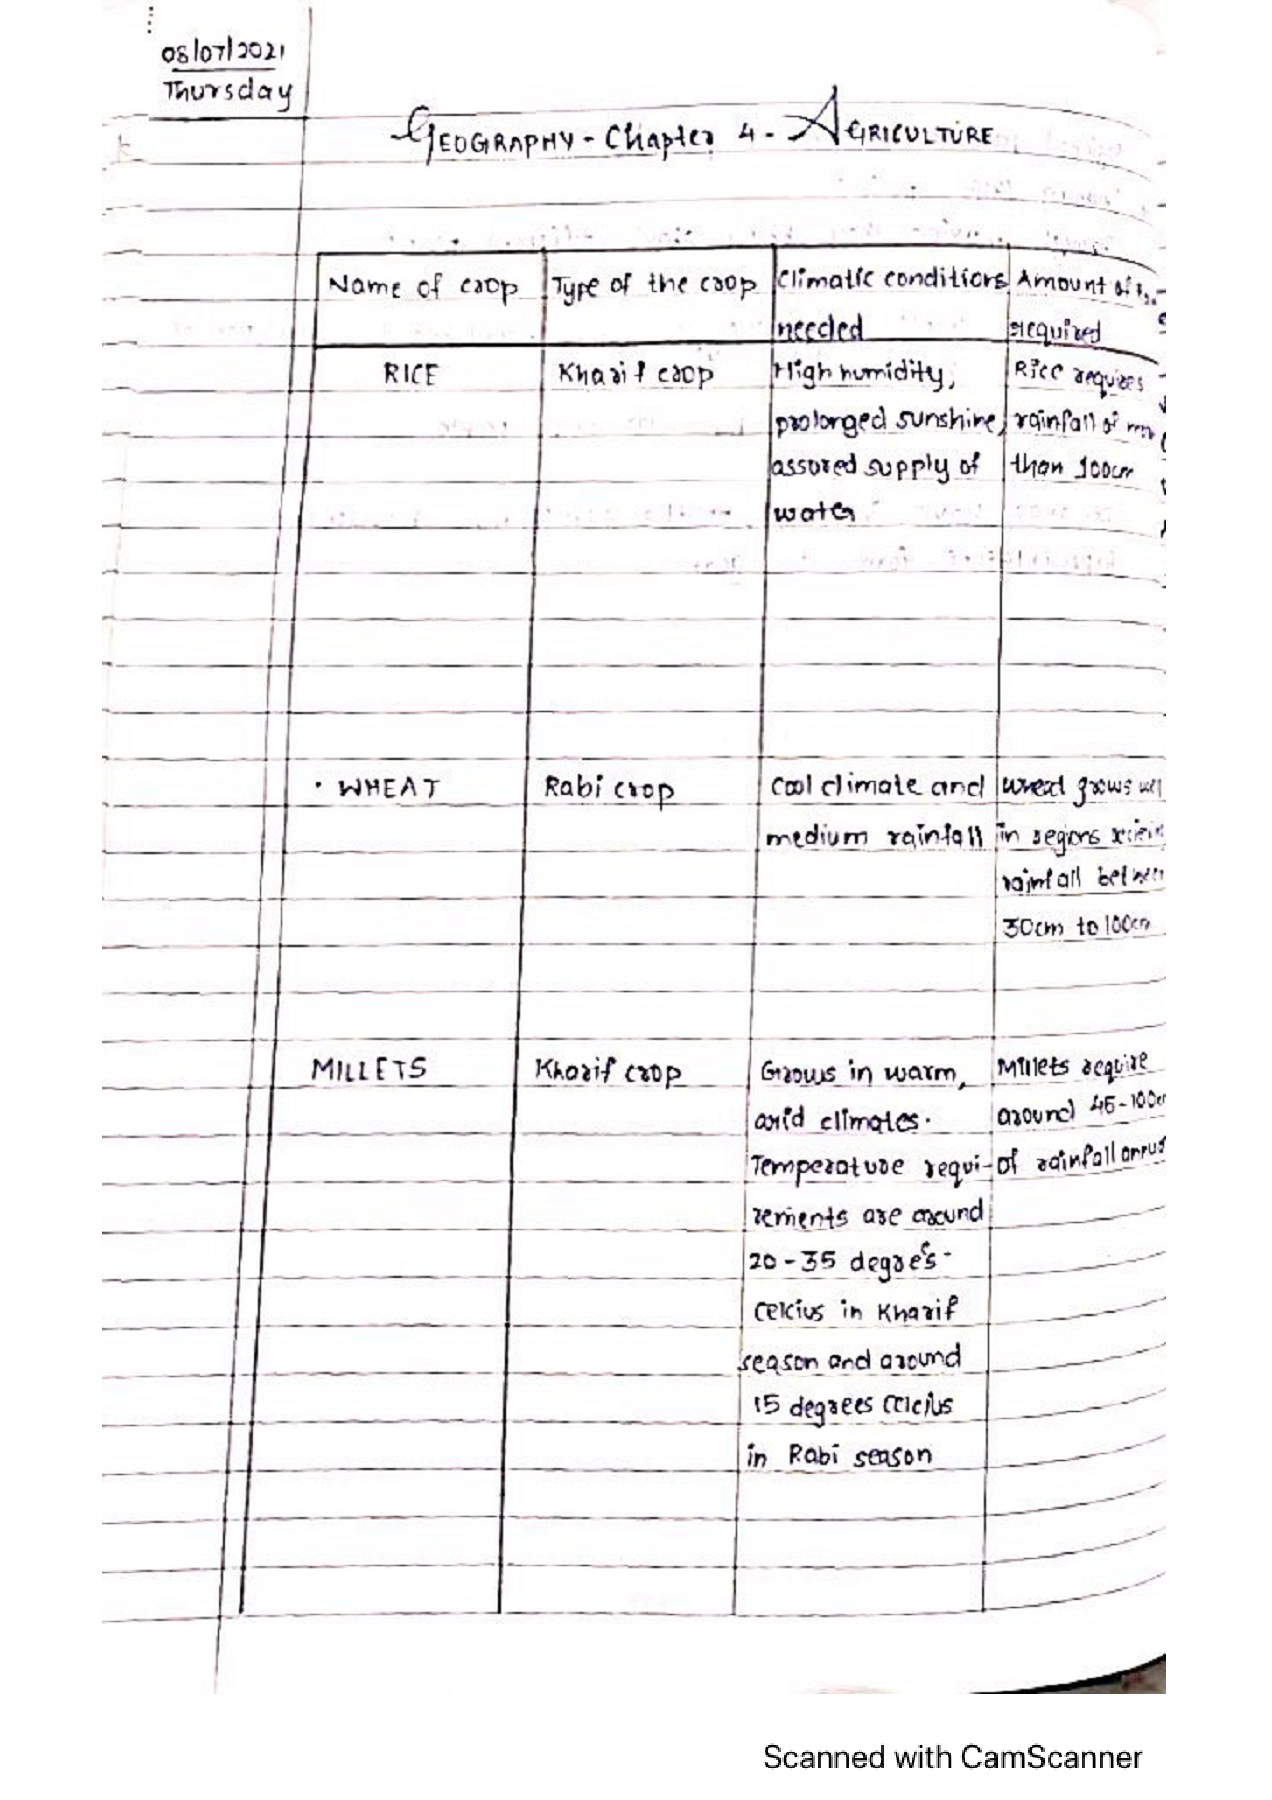 08/07/2021
Thursday
GEOGRAPHY - Chapter 4 - AGRICULTURE
Name of crop Type of the crop Climatic conditions Amount of
needed required
RICE Kharif crop High humidity, Rice requires
prolonged sunshine, rainfall of
assured supply of than 100cm
water
· WHEAT Rabi crop Cool climate and Wheat grows
medium rainfall in regions
rainfall
30cm to 100cm
MILLETS Kharif crop Grows in warm, Millets require
arid climates. around 45-100cm
Temperature requi- of rainfall
rements are around
20-35 degrees
celcius in Kharif
season and around
15 degrees celcius
in Rabi season
Scanned with CamScanner